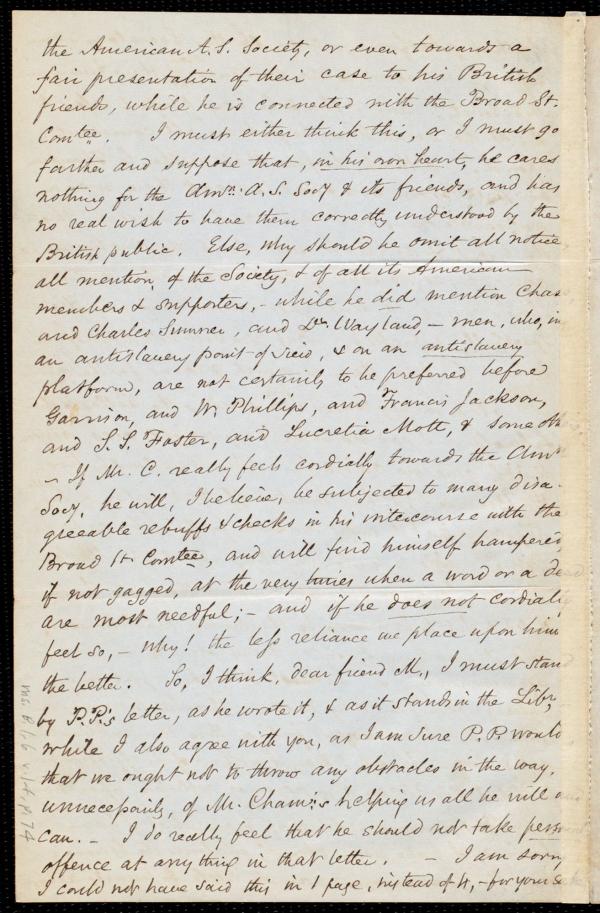 the American A. S. Society, or even towards a
fair presentation of their case to his British
friends, while he is connected with the Broad St.
Comtee. I must either think this, or I must go
farther and suppose that, in his own heart, he cares
nothing for the Amn. A. S. Socy & its friends, and has
no real wish to have them correctly understood by the
British public. Else, why should he omit all notice,
all mention, of the Society, & of all its American
members & supporters, - while he did mention Chas
and Charles Sumner, and Dr. Wayland, - men, who, in
an antislavery point of view, & on an antislavery
platform, are not certainly to be preferred before
Garrison, and W. Phillips, and Francis Jackson,
and S. S. Foster, and Lucretia Mott, & some oth
- If Mr. C. really feels cordially towards the Amn
Socy, he will, I believe, be subjected to many disa-
greeable rebuffs & checks in his intercourse with the
Broad St Comtee, and will find himself hampered,
if not gagged, at the very times when a word or a de
are most needful; - and if he does not cordially
feel so, - why! the less reliance we place upon him
the better. So, I think, dear friend M., I must stand
by P.P.'s letter, as he wrote it, & as it stands in the Libr,
while I also agree with you, as I am sure P. P. would
that we ought not to throw any obstacles in the way,
unnecessarily, of Mr. Cham's helping us all he will
can. - I do really feel that he should not take pers
offence at anything in that letter. - I am sorry
I could not have said this in 1 page, instead of 4, - for your
Ms. B.1.6 v.4, p.74